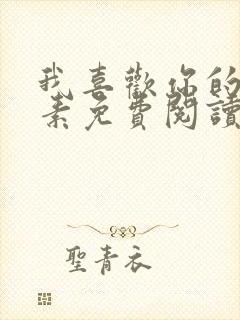 我喜歡你的
素免費閱讀
聖青衣